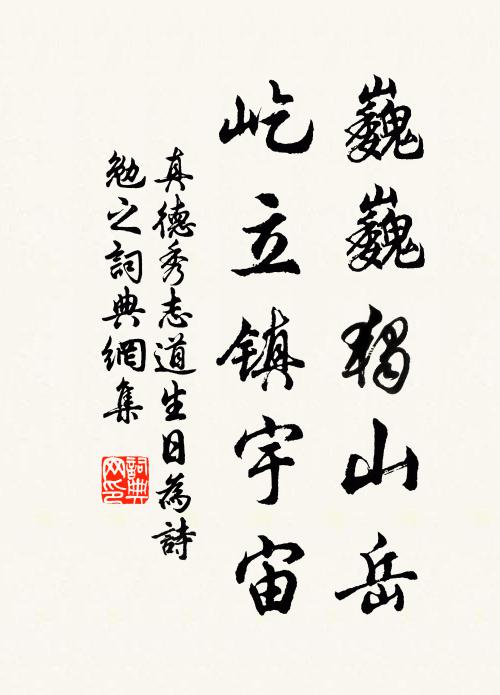 巍巍獨山岳
屹立鎮宇宙
真德秀志道生日為詩
勉之詞典網集
詞典
网印